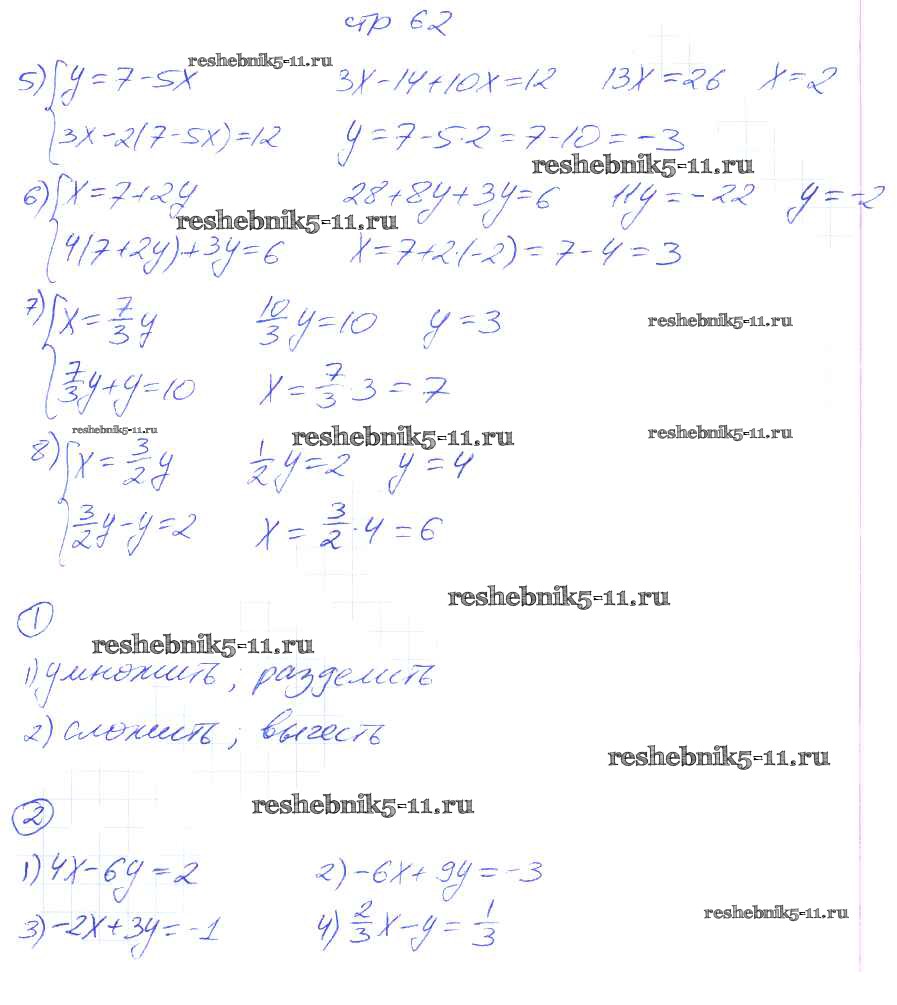 стр 62
reshebnik5-11.ru
5) { y = 7 - 5x 3x - 14 + 10x = 12 13x = 26 x = 2
3x - 2(7 - 5x) = 12 y = 7 - 5·2 = 7 - 10 = -3
reshebnik5-11.ru
6) { x = 7 + 2y 28 + 8y + 3y = 6 11y = -22 y = -2
reshebnik5-11.ru
4(7 + 2y) + 3y = 6 x = 7 + 2·(-2) = 7 - 4 = 3
7) { x = 7/3 y 10/3 y = 10 y = 3
reshebnik5-11.ru
7/3 y + y = 10 x = 7/3 · 3 = 7
reshebnik5-11.ru reshebnik5-11.ru reshebnik5-11.ru
8) { x = 3/2 y 1/2 y = 2 y = 4
3/2 y - y = 2 x = 3/2 · 4 = 6
reshebnik5-11.ru
1
reshebnik5-11.ru
1) умножить; разделить
2) сложить; вычесть
reshebnik5-11.ru
reshebnik5-11.ru
2
1) 4x - 6y = 2 2) -6x + 9y = -3
reshebnik5-11.ru
3) -2x + 3y = -1 4) 2/3 x - y = 1/3